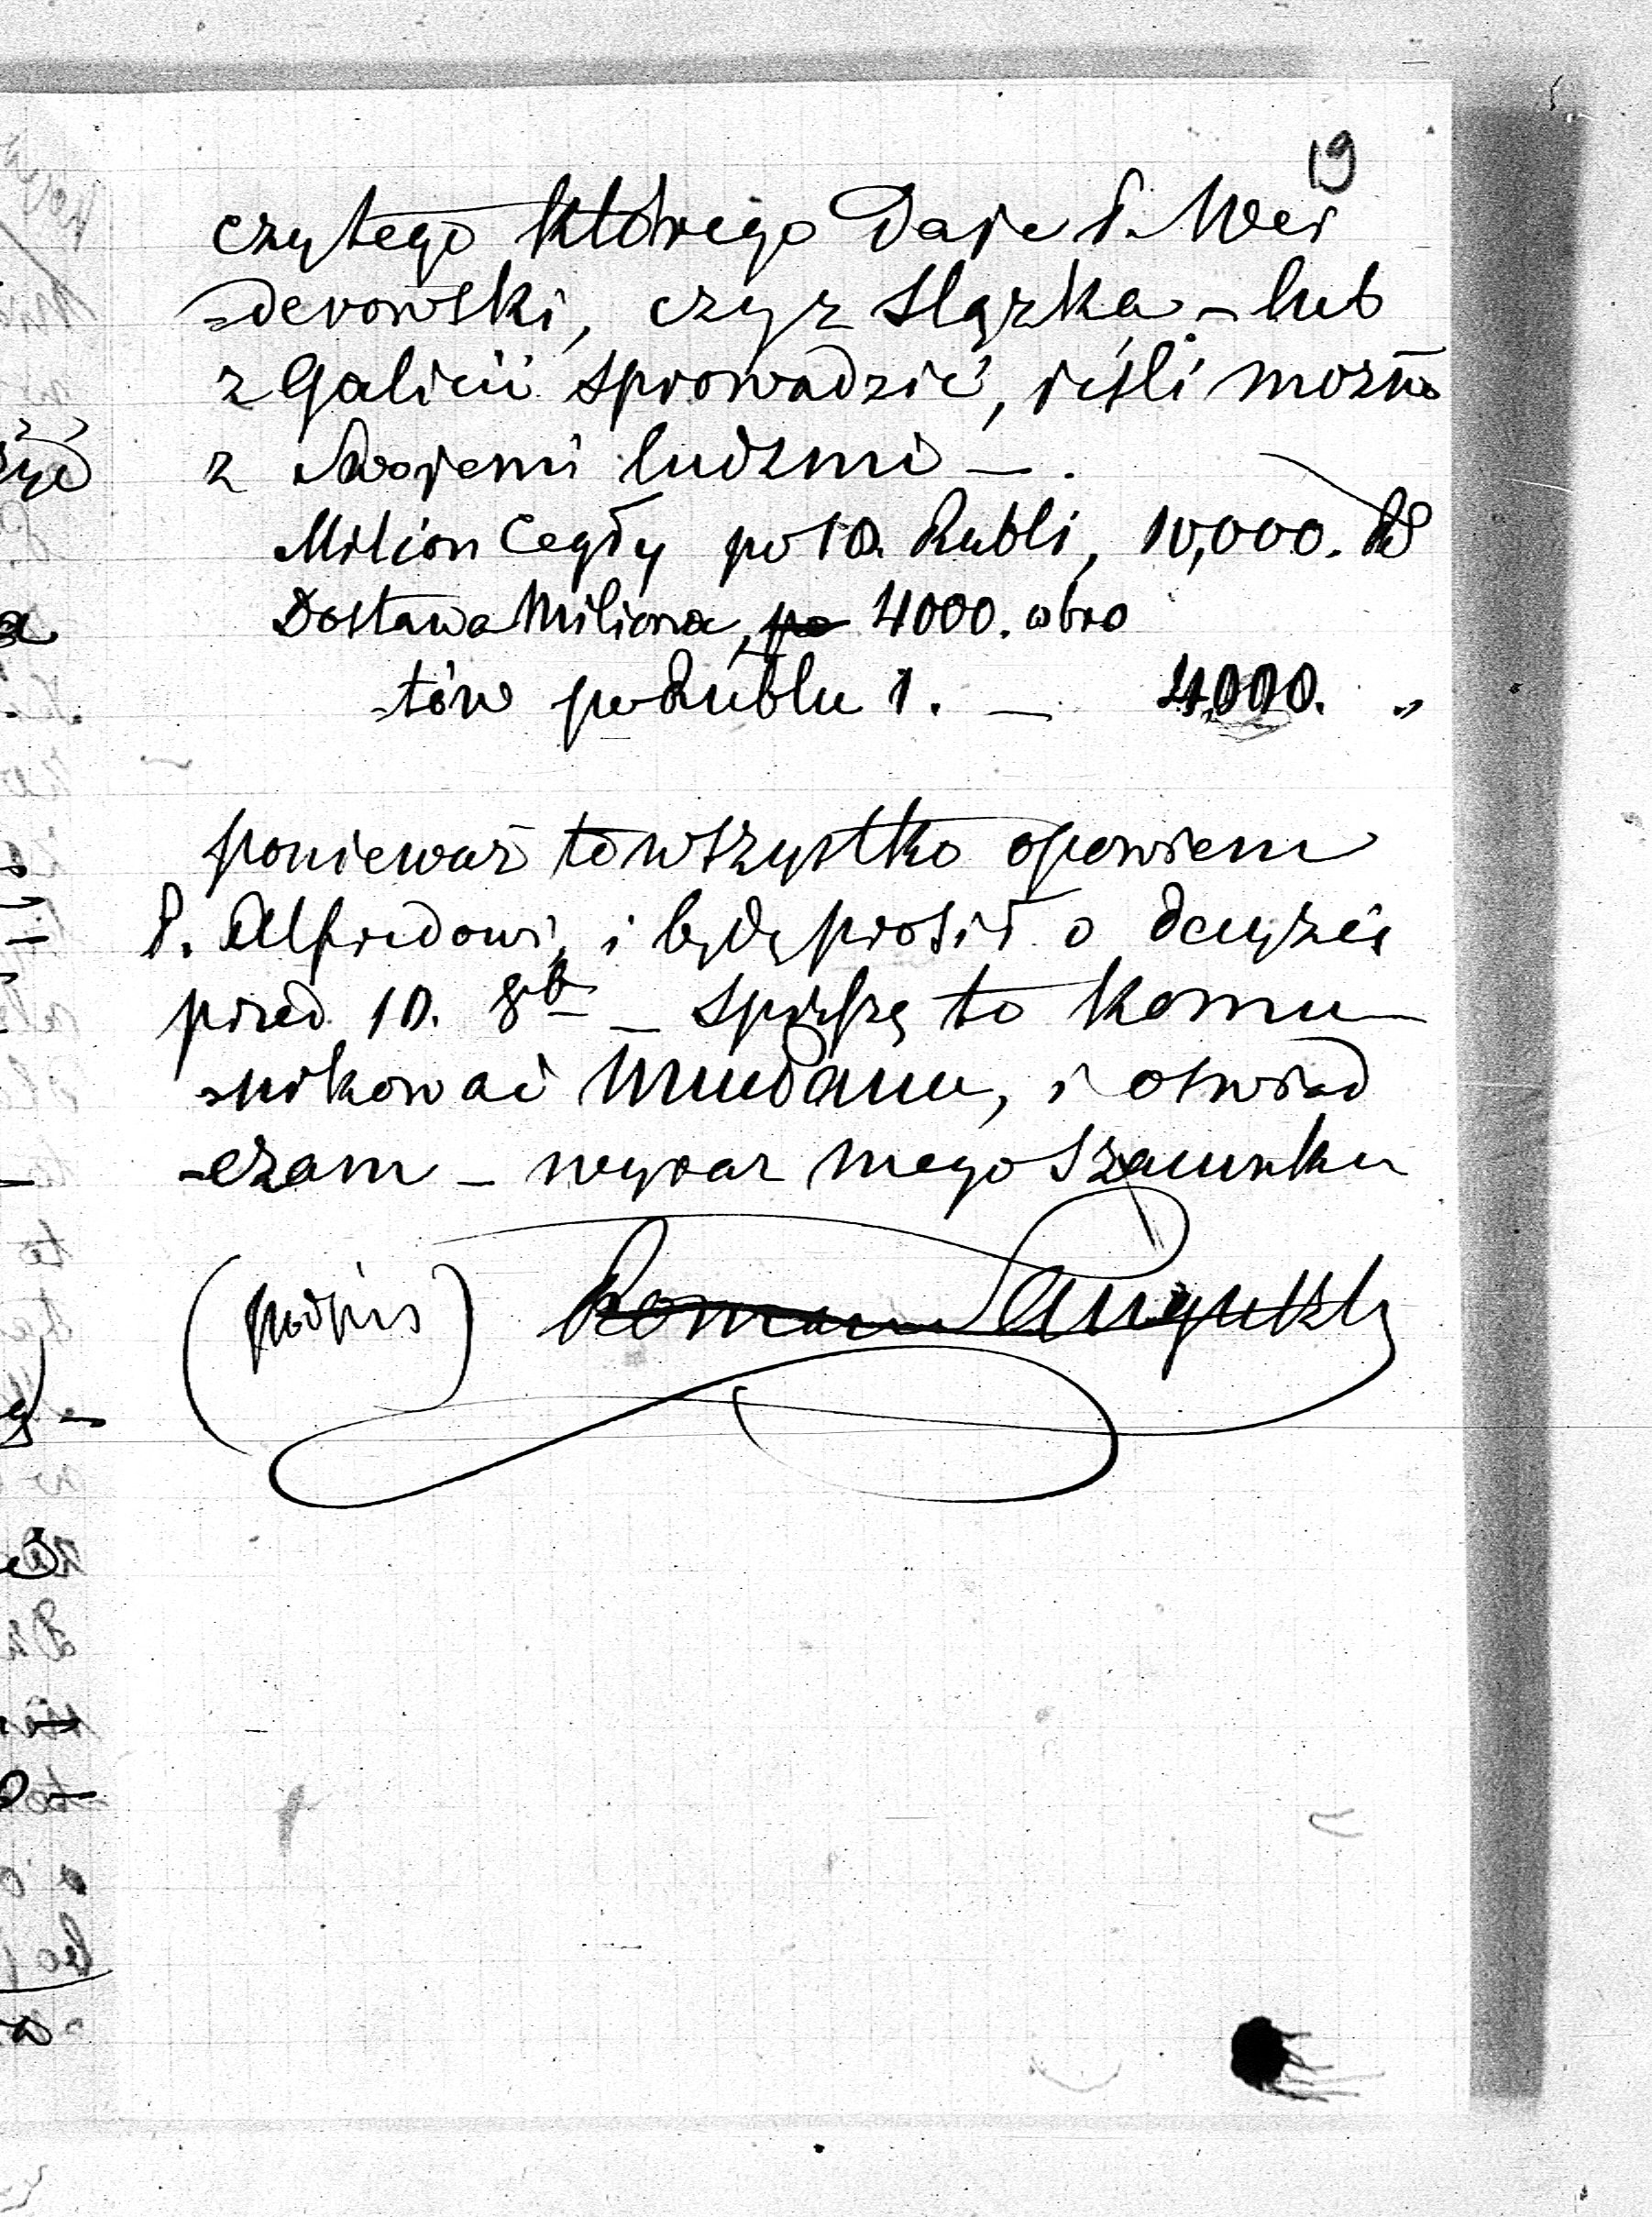 19
czy tego którego Daje P. Wey
-derowski, czy z Slązka – lub
z Galicii sprowadzić, jeśli można
z swojemi ludzmi – .
Milion Cegły po 10. Rubli, 10,000. RS
Dostawa Miliona, po 4000. obro
-tów po Rublu 1. – 4,000. "
ponieważ to wszystko opowiem
P. Alfredowi, i będę prosił o decyzię
przed 10. 8b – spieszę to komu
-nikować WMuDanu, i oswiad
-czam – wyraz mego szacunku
(podpis) Roman Sanguszko